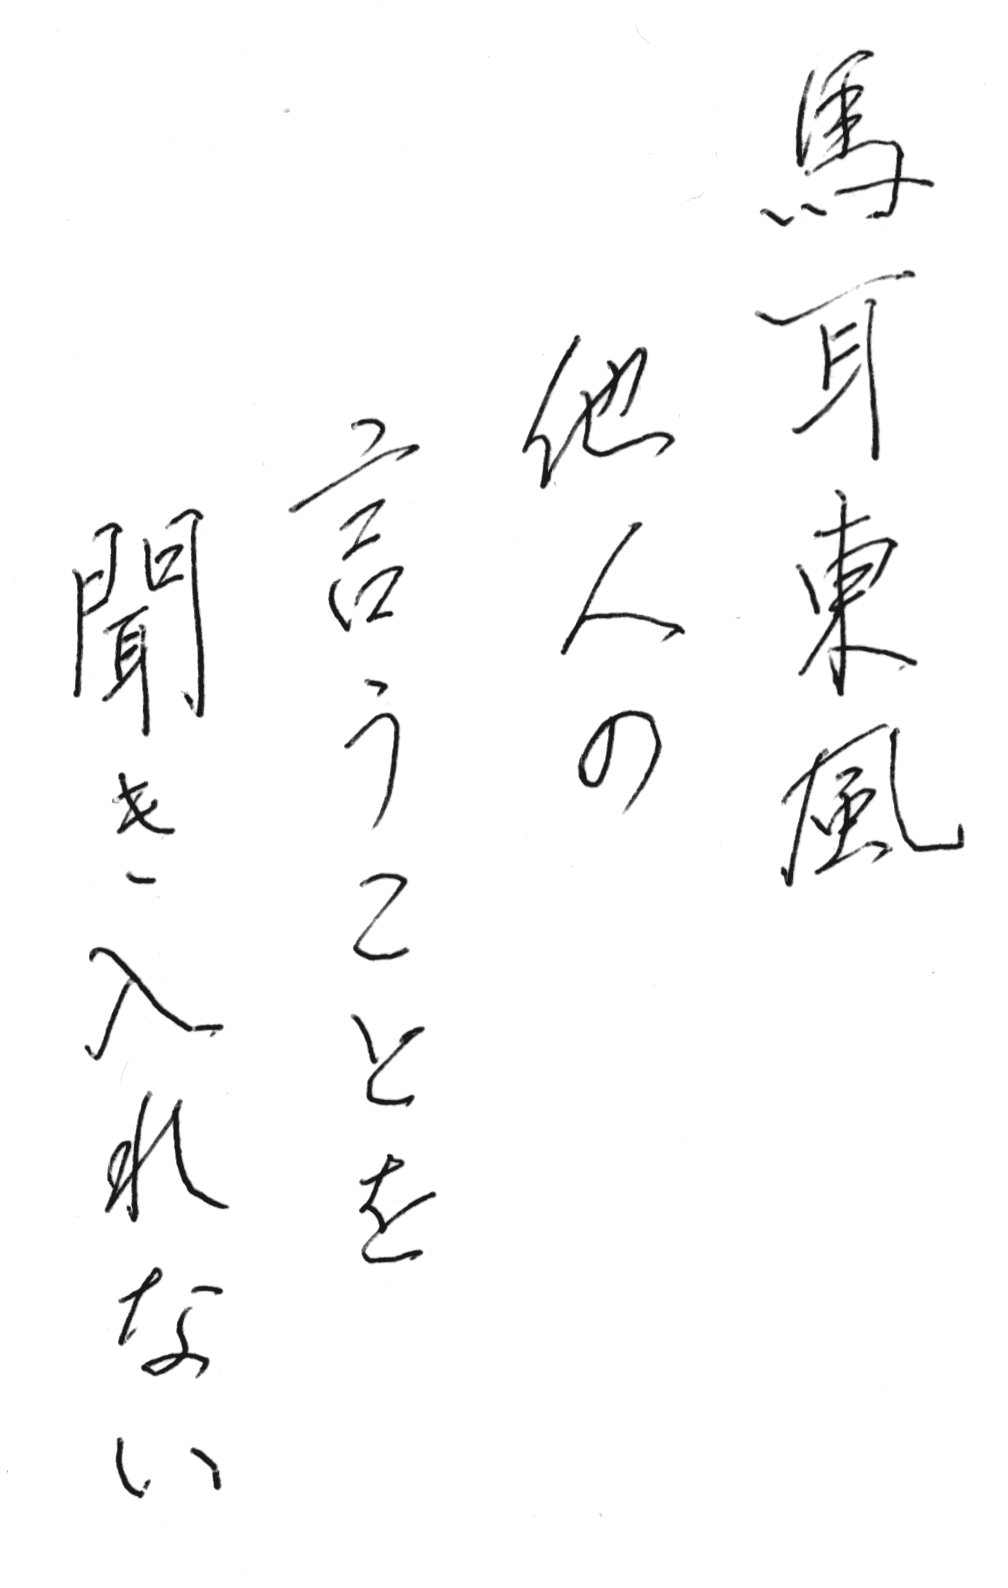 馬耳東風
他人の
言うことを
聞き入れない